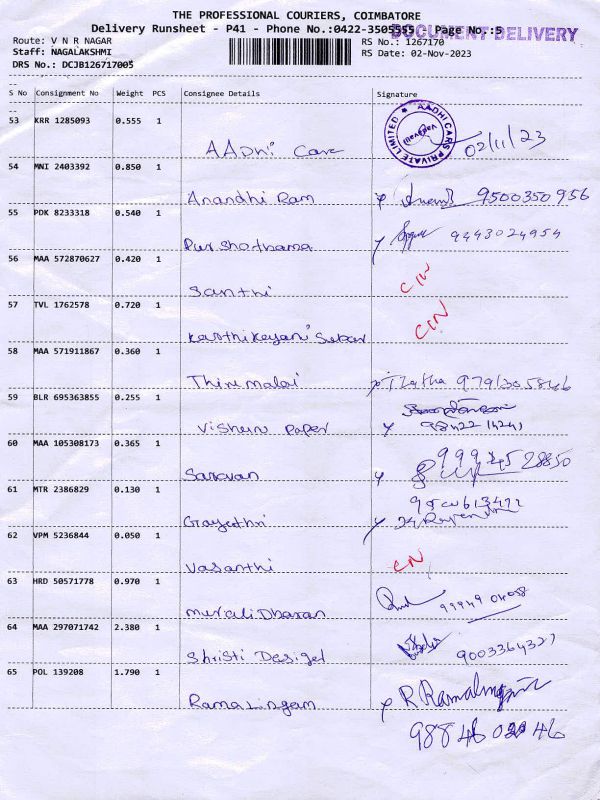 THE PROFESSIONAL COURIERS, COIMBATORE
Delivery Runsheet - P41 - Phone No.:0422-3505555 Page No.:5
DOCUMENT DELIVERY
Route: V N R NAGAR
RS No.: 1267170
Staff: NAGALAKSHMI
RS Date: 02-Nov-2023
DRS No.: DCJB126717005
S No Consignment No Weight PCS Consignee Details Signature
53 KRR 1285093 0.555 1
AADHI CARS PRIVATE LIMITED
AADhi Care 02/11/23
54 MNI 2403392 0.850 1
Anandhi Ram 9500350956
55 PDK 8233318 0.540 1
Purshothama 9443024954
56 MAA 572870627 0.420 1
Santhi CIN
57 TVL 1762578 0.720 1
Karthikeyani Sekar CIN
58 MAA 571911867 0.360 1
Thirumalai T Latha
59 BLR 695363855 0.255 1
Vishnu Paper
60 MAA 105308173 0.365 1
Saravan
61 MTR 2386829 0.130 1
Gayathri
62 VPM 5236844 0.050 1
Vasanthi CN
63 HRD 50571778 0.970 1
MuraliDharan
64 MAA 297071742 2.380 1
Shristi Desigel 9003364327
65 POL 139208 1.790 1
Ramalingam R Ramalingam